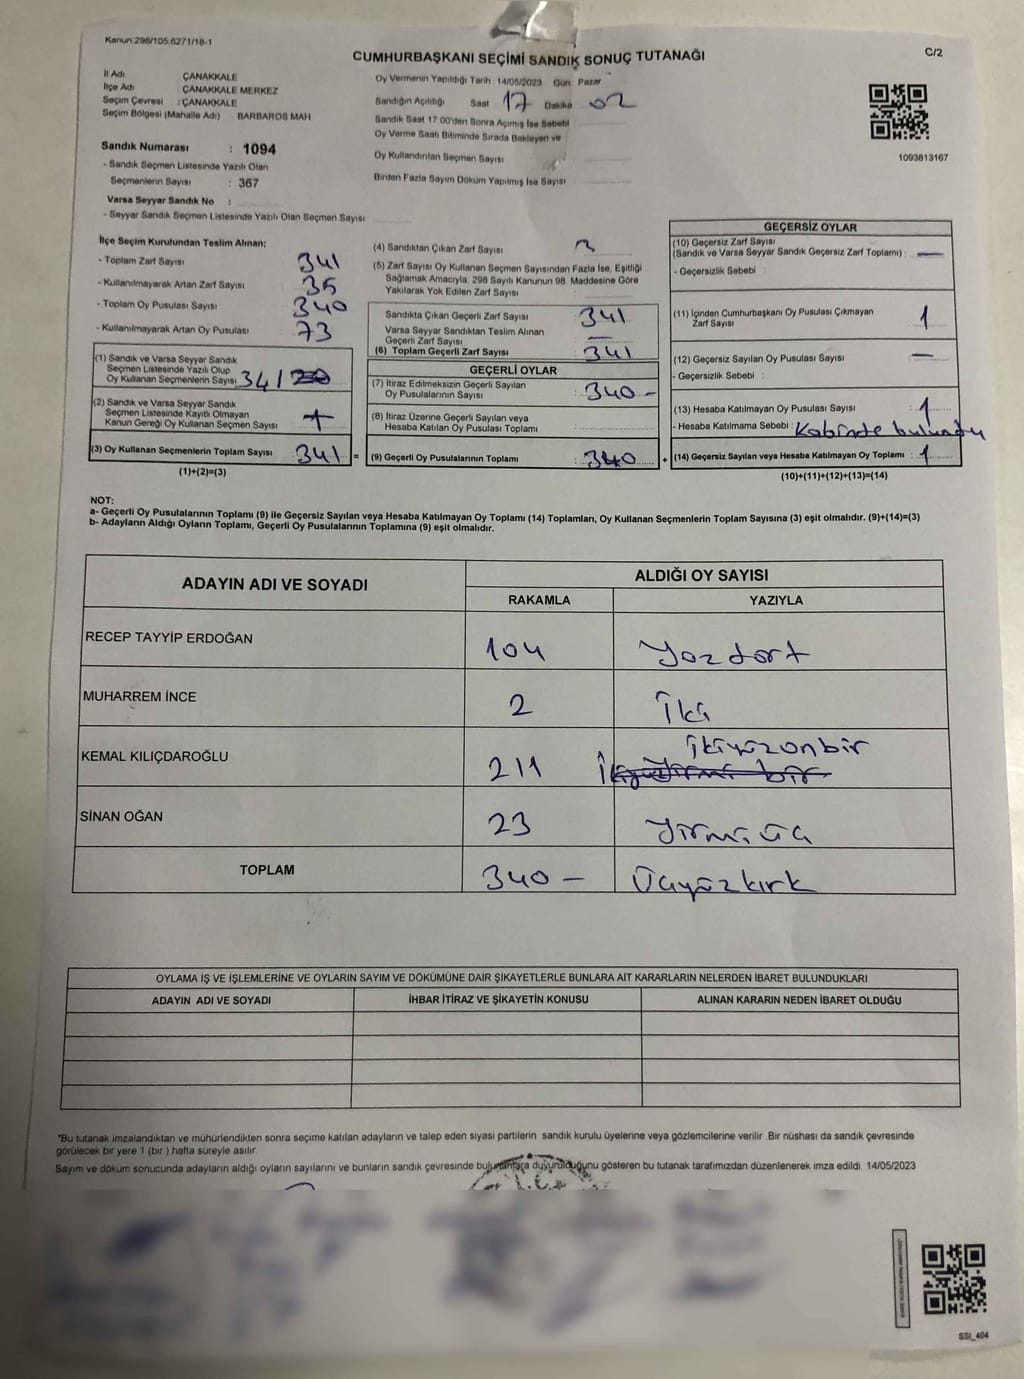 Kanun:298/105,6271/18-1
C/2
CUMHURBAŞKANI SEÇİMİ SANDIK SONUÇ TUTANAĞI
İl Adı ÇANAKKALE
İlçe Adı ÇANAKKALE MERKEZ
Seçim Çevresi : ÇANAKKALE
Seçim Bölgesi (Mahalle Adı) BARBAROS MAH
Sandık Numarası : 1094
- Sandık Seçmen Listesinde Yazılı Olan
Seçmenlerin Sayısı : 367
Varsa Seyyar Sandık No :
- Seyyar Sandık Seçmen Listesinde Yazılı Olan Seçmen Sayısı
Oy Vermenin Yapıldığı Tarih 14/05/2023 Gün Pazar
Sandığın Açıldığı Saat 17 Dakika 02
Sandık Saat 17:00'den Sonra Açımış İse Sebebi
Oy Verme Saati Bitiminde Sırada Bekleyen ve
Oy Kullandırılan Seçmen Sayısı
Birden Fazla Sayım Döküm Yapılmış İse Sayısı
1093813167
İlçe Seçim Kurulundan Teslim Alınan;
- Toplam Zarf Sayısı 341
- Kullanılmayarak Artan Zarf Sayısı 35
- Toplam Oy Pusulası Sayısı 340
- Kullanılmayarak Artan Oy Pusulası 73
(1) Sandık ve Varsa Seyyar Sandık
Seçmen Listesinde Yazılı Olup
Oy Kullanan Seçmenlerin Sayısı 341
(2) Sandık ve Varsa Seyyar Sandık
Seçmen Listesinde Kayıtlı Olmayan
Kanun Gereği Oy Kullanan Seçmen Sayısı
(3) Oy Kullanan Seçmenlerin Toplam Sayısı 341 =
(1)+(2)=(3)
(4) Sandıktan Çıkan Zarf Sayısı
(5) Zarf Sayısı Oy Kullanan Seçmen Sayısından Fazla İse, Eşitliği
Sağlamak Amacıyla, 298 Sayılı Kanunun 98. Maddesine Göre
Yakılarak Yok Edilen Zarf Sayısı :
Sandıkta Çıkan Geçerli Zarf Sayısı 341
Varsa Seyyar Sandıktan Teslim Alınan
Geçerli Zarf Sayısı : —
(6) Toplam Geçerli Zarf Sayısı 341
GEÇERLİ OYLAR
(7) İtiraz Edilmeksizin Geçerli Sayılan
Oy Pusulalarının Sayısı : 340 -
(8) İtiraz Üzerine Geçerli Sayılan veya
Hesaba Katılan Oy Pusulası Toplamı :
(9) Geçerli Oy Pusulalarının Toplamı : 340 +
GEÇERSİZ OYLAR
(10) Geçersiz Zarf Sayısı
(Sandık ve Varsa Seyyar Sandık Geçersiz Zarf Toplamı) : —
- Geçersizlik Sebebi :
(11) İçinden Cumhurbaşkanı Oy Pusulası Çıkmayan
Zarf Sayısı : 1
(12) Geçersiz Sayılan Oy Pusulası Sayısı : —
- Geçersizlik Sebebi :
(13) Hesaba Katılmayan Oy Pusulası Sayısı : 1
- Hesaba Katılmama Sebebi : Kabinde bulundu
(14) Geçersiz Sayılan veya Hesaba Katılmayan Oy Toplamı : 1
(10)+(11)+(12)+(13)=(14)
NOT:
a- Geçerli Oy Pusulalarının Toplamı (9) ile Geçersiz Sayılan veya Hesaba Katılmayan Oy Toplamı (14) Toplamları, Oy Kullanan Seçmenlerin Toplam Sayısına (3) eşit olmalıdır. (9)+(14)=(3)
b- Adayların Aldığı Oyların Toplamı, Geçerli Oy Pusulalarının Toplamına (9) eşit olmalıdır.
ADAYIN ADI VE SOYADI
ALDIĞI OY SAYISI
RAKAMLA YAZIYLA
RECEP TAYYİP ERDOĞAN 104 Yüz dört
MUHARREM İNCE 2 İki
KEMAL KILIÇDAROĞLU 211 İkiyüzonbir
SİNAN OĞAN 23 Yirmi üç
TOPLAM 340 - Üçyüzkırk
OYLAMA İŞ VE İŞLEMLERİNE VE OYLARIN SAYIM VE DÖKÜMÜNE DAİR ŞİKAYETLERLE BUNLARA AİT KARARLARIN NELERDEN İBARET BULUNDUKLARI
ADAYIN ADI VE SOYADI İHBAR İTİRAZ VE ŞİKAYETİN KONUSU ALINAN KARARIN NEDEN İBARET OLDUĞU
*Bu tutanak imzalandıktan ve mühürlendikten sonra seçime katılan adayların ve talep eden siyasi partilerin sandık kurulu üyelerine veya gözlemcilerine verilir. Bir nüshası da sandık çevresinde
görülecek bir yere 1 (bir ) hafta süreyle asılır.
Sayım ve döküm sonucunda adayların aldığı oyların sayılarını ve bunların sandık çevresinde bulunanlara duyurulduğunu gösteren bu tutanak tarafımızdan düzenlenerek imza edildi. 14/05/2023
SSI_404